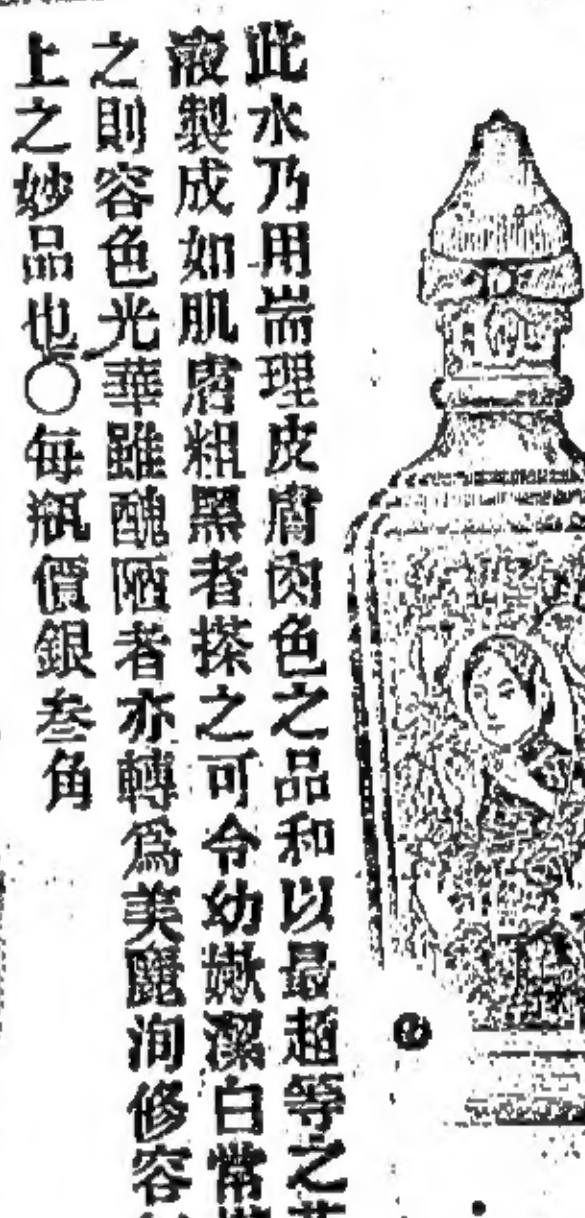 此水乃用耑理皮膚肉色之品和以最超等之
液製成如肌膚粗黑者搽之可令幼嫩潔白常
之則容色光華雖醜陋者亦轉為美麗洵修容
上之妙品也〇每瓶價銀叁角